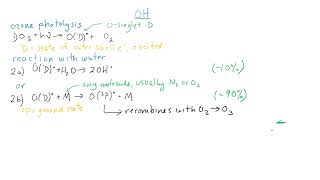 OH
ozone photolysis O-singlet-D
1) O₃ + hν → O(¹D)• + O₂
¹D = state of outer shell e⁻, excited
reaction with water
2a) O(¹D)• + H₂O → 2OH• (~10%)
or any molecule, usually N₂ or O₂
2b) O(¹D)• + M → O(³P)• + M (~90%)
³P = ground state ↳ recombines with O₂ → O₃